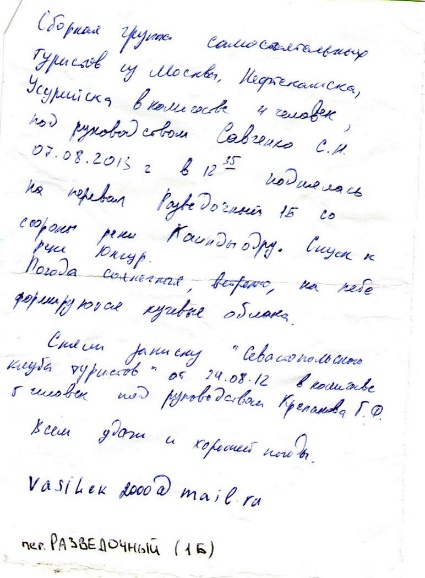 Сборная группа самостоятельных
туристов из Москвы, Нефтекамска,
Усурийска в количестве 4 человек,
под руководством Савченко С.Н.
07.08.2013 г в 12 35 поднялась
на перевал Разведочный 1Б со
стороны реки Каинды одру. Спуск к
реке Юнгур.
Погода солнечная, на небе
формируются кучевые облака.
Сняли записку "Севастопольского
клуба туристов" от 24.08.12 в количестве
5 человек под руководством Г.Ф.
Всем удачи и хорошей погоды.
vasilek2000@mail.ru
пер. РАЗВЕДОЧНЫЙ (1Б)